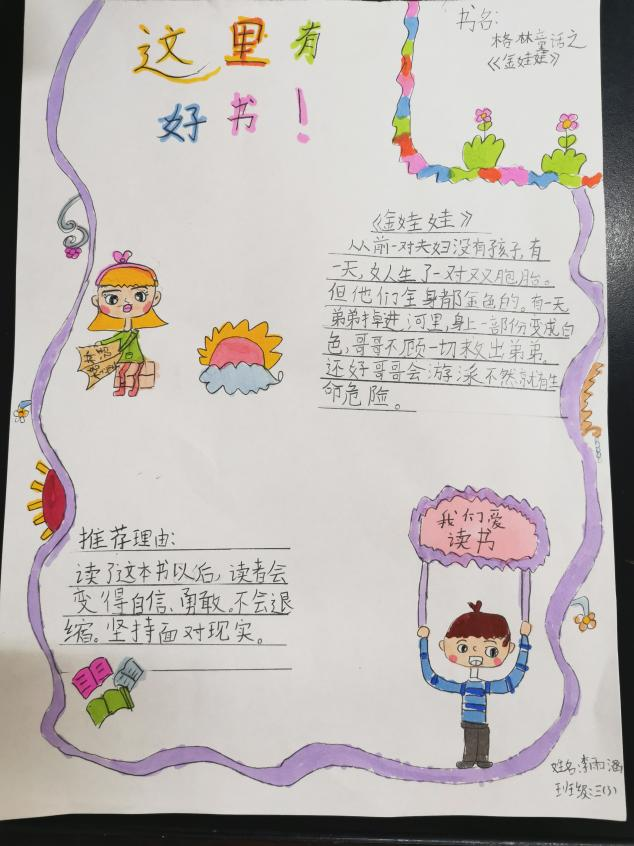 这里有
好书!
书名:
格林童话之
《金娃娃》
《金娃娃》
从前一对夫妇没有孩子,有
一天,女人生了一对双胞胎。
但他们全身都金色的。有一天
弟弟掉进河里,身上一部份变成白
色,哥哥不顾一切救出弟弟。
还好哥哥会游泳,不然就有生
命危险。
我们爱
读书
推荐理由:
读了这本书以后,读者会
变得自信、勇敢。不会退
缩。坚持面对现实。
姓名:李雨涵
班级:三(3)